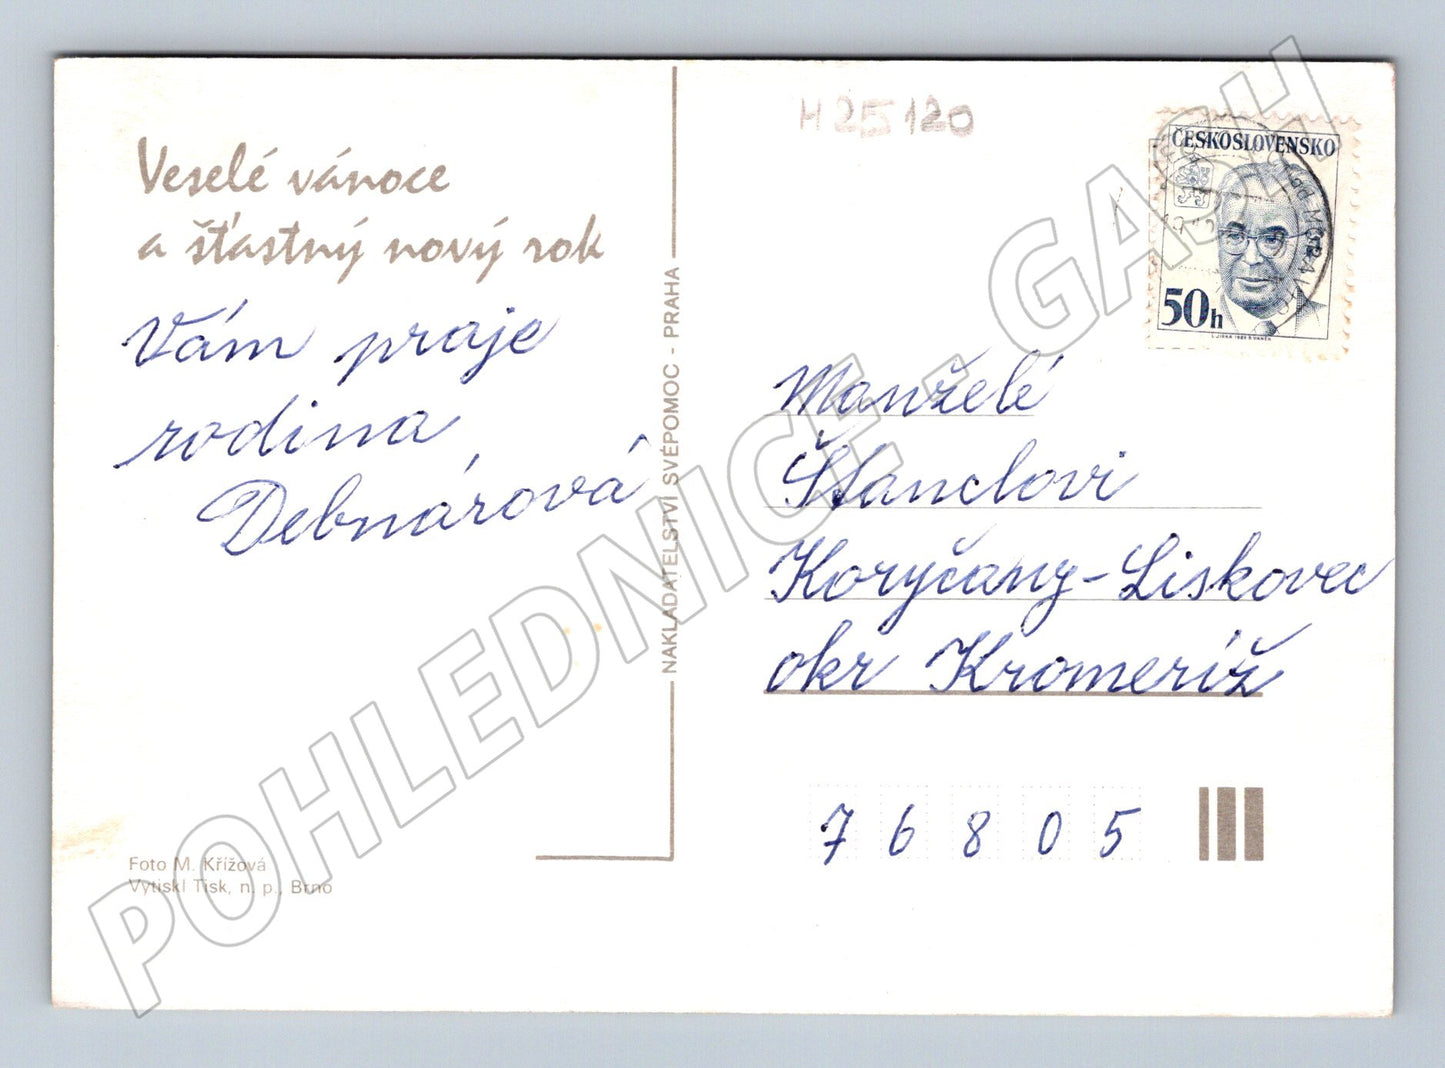 Veselé vánoce
a šťastný nový rok
Vám praje
rodina
Debnárová
Foto M. Křížová
Vytiskl Tisk, n. p., Brno
NAKLADATELSTVÍ SVÉPOMOC - PRAHA
H 25 120
ČESKOSLOVENSKO
50h
Manželé
Štanclovi
Koryčany-Liskovec
okr Kromeríž
7 6 8 0 5
POHLEDNICE - GASH